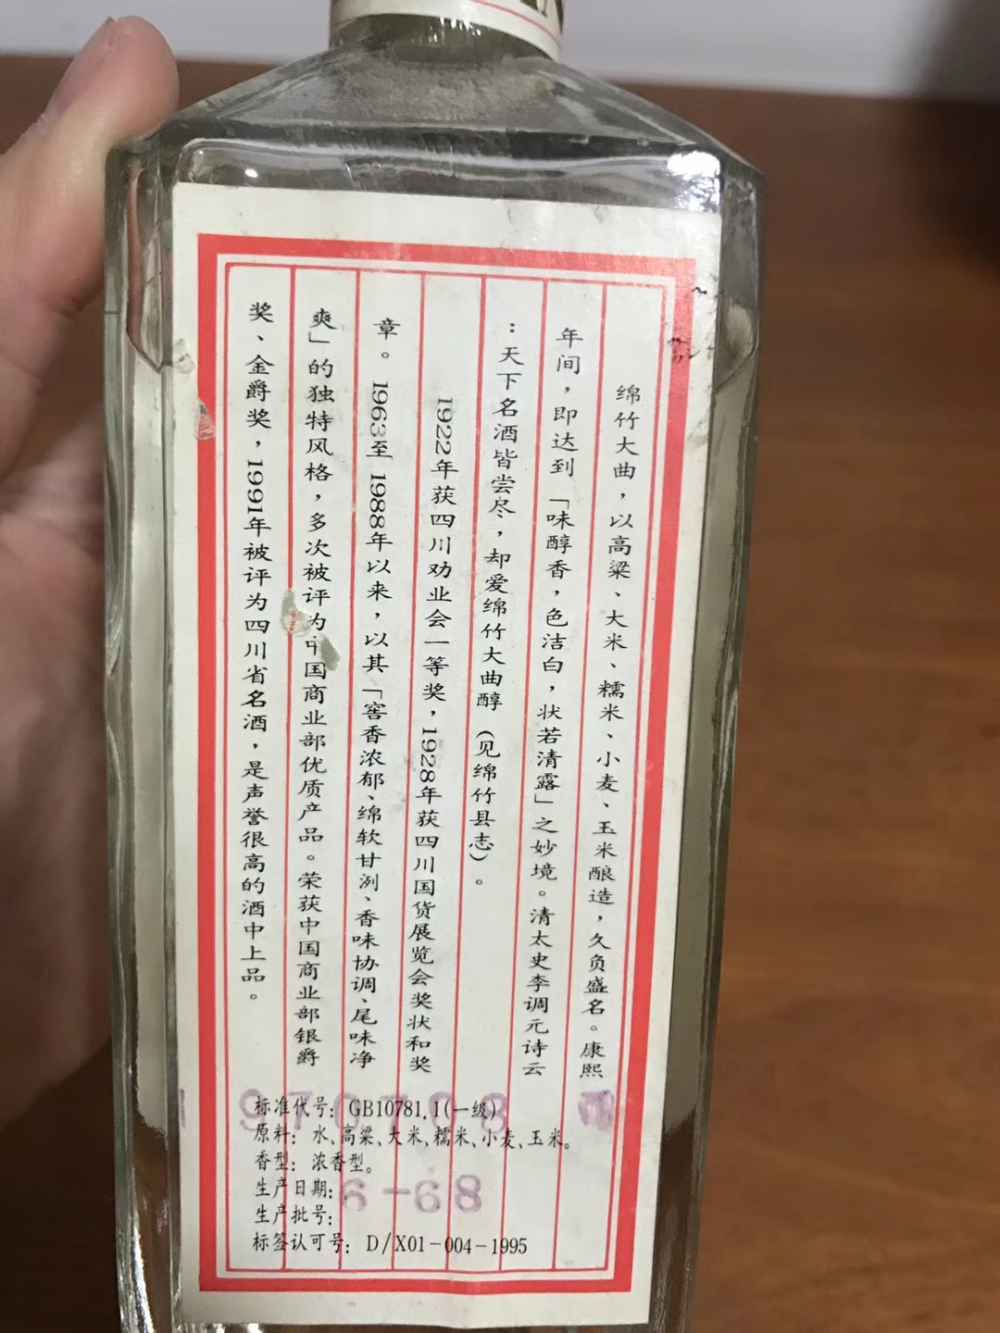 绵竹大曲，以高粱、大米、糯米、小麦、玉米酿造，久负盛名。康熙
年间，即达到「味醇香，色洁白，状若清露」之妙境。清太史李调元诗云
：天下名酒皆尝尽，却爱绵竹大曲醇（见绵竹县志）。
1922年获四川劝业会一等奖，1928年获四川国货展览会奖状和奖
章。1963至1988年以来，以其「窖香浓郁、绵软甘洌、香味协调、尾味净
爽」的独特风格，多次被评为中国商业部优质产品。荣获中国商业部银爵
奖、金爵奖，1991年被评为四川省名酒，是声誉很高的酒中上品。
标准代号：GB10781.1(一级)
原料：水、高粱、大米、糯米、小麦、玉米。
香型：浓香型。
生产日期：
6-68
生产批号：
标签认可号：D/X01-004-1995